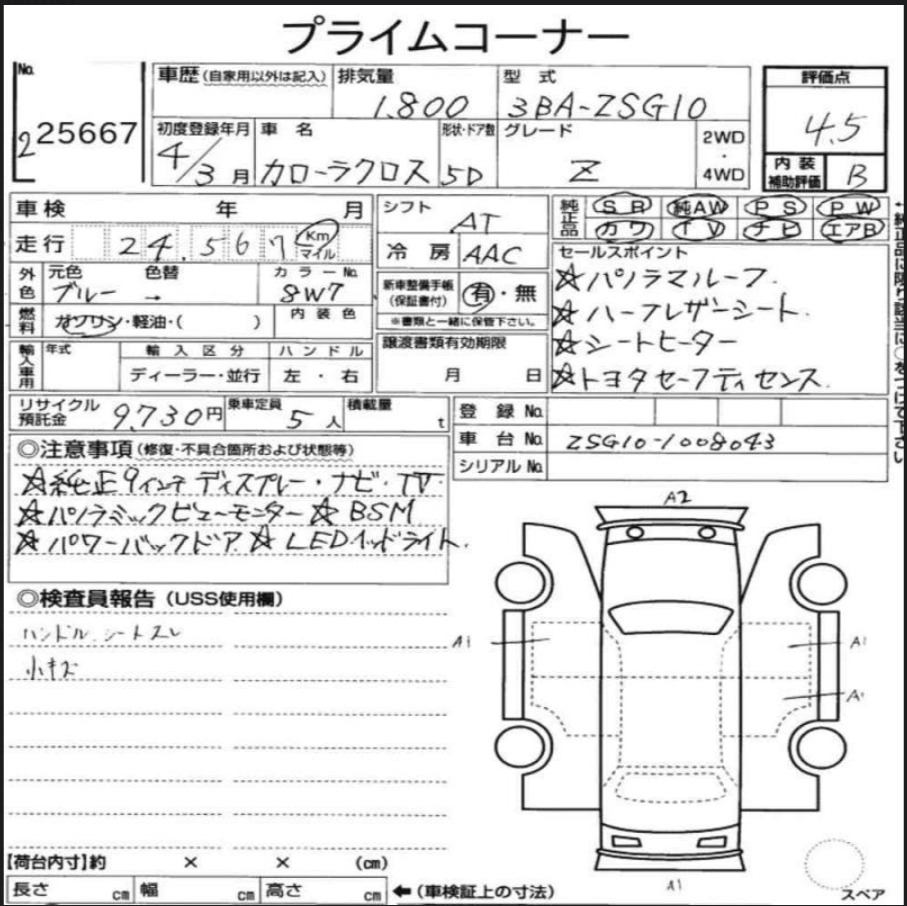 プライムコーナー
No. 225667
車歴(自家用以外は記入)
排気量 1.800
型式 3BA-ZSG10
評価点 4.5
初度登録年月 4/3月
車名 カローラクロス
形状・ドア数 5D
グレード Z
2WD・4WD
内装補助評価 B
車検 年 月
シフト AT
純正品 SR 純AW PS PW
カワ TV ナビ エアB
←純正品に限り該当に○をつけて下さい
走行 24,567 Km マイル
冷房 AAC
セールスポイント
☆パノラマルーフ.
☆ハーフレザーシート.
☆シートヒーター
☆トヨタセーフティセンス.
外色 元色 ブルー → 色替
カラーNo. 8W7
新車整備手帳(保証書付) 有・無
※書類と一緒に保管下さい。
燃料 ガソリン・軽油・( )
内装色
輸入車用 年式
輸入区分 ディーラー・並行
ハンドル 左・右
譲渡書類有効期限 月 日
リサイクル預託金 9,730円
乗車定員 5人
積載量 t
登録No.
車台No. ZSG10-1008043
シリアルNo.
◎注意事項(修復・不具合箇所および状態等)
☆純正9インチディスプレー・ナビ・TV
☆パノラミックビューモニター ☆BSM
☆パワーバックドア ☆LEDヘッドライト.
◎検査員報告(USS使用欄)
ハンドル、シートスレ
小キズ
A2
A1
A1
A1
A1
スペア
【荷台内寸】約 × × (cm)
長さ cm 幅 cm 高さ cm ←(車検証上の寸法)